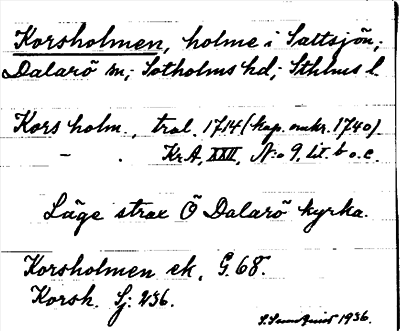 Korsholmen, holme i Saltsjön;
Dalarö sn; Sotholms hd; Sthlms l.
Kors holm., tral. 1714 (kop. omkr. 1740).
— . Kr.A, XXII, N:o 9, lit. b o. c.
Läge strax Ö Dalarö kyrka.
Korsholmen ek. G. 68.
Korsh. Sj: 236.
1936.